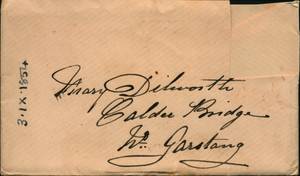 Mary Dilworth
Calder Bridge
Nr. Garstang
3.IX.1854